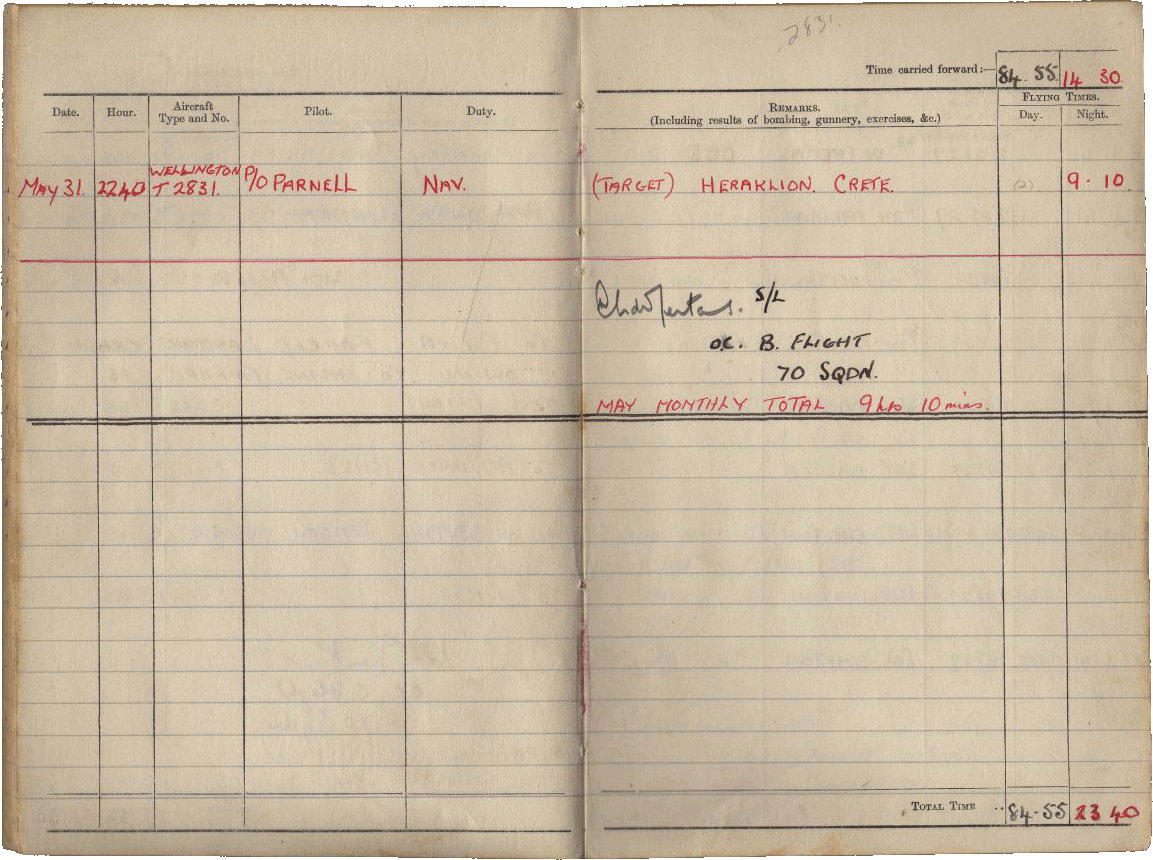 2831.
Time carried forward:— 84. 55 14 30.
Date. Hour. Aircraft Type and No. Pilot. Duty. REMARKS. (Including results of bombing, gunnery, exercises, &c.) FLYING TIMES. Day. Night.
MAY 31. 2240 WELLINGTON T 2831. P/O PARNELL NAV. (TARGET) HERAKLION. CRETE. (2) 9. 10
S/L
O.C. B. FLIGHT
70 SQDN.
MAY MONTHLY TOTAL 9 hrs 10 mins.
TOTAL TIME .. 84-55 23 40